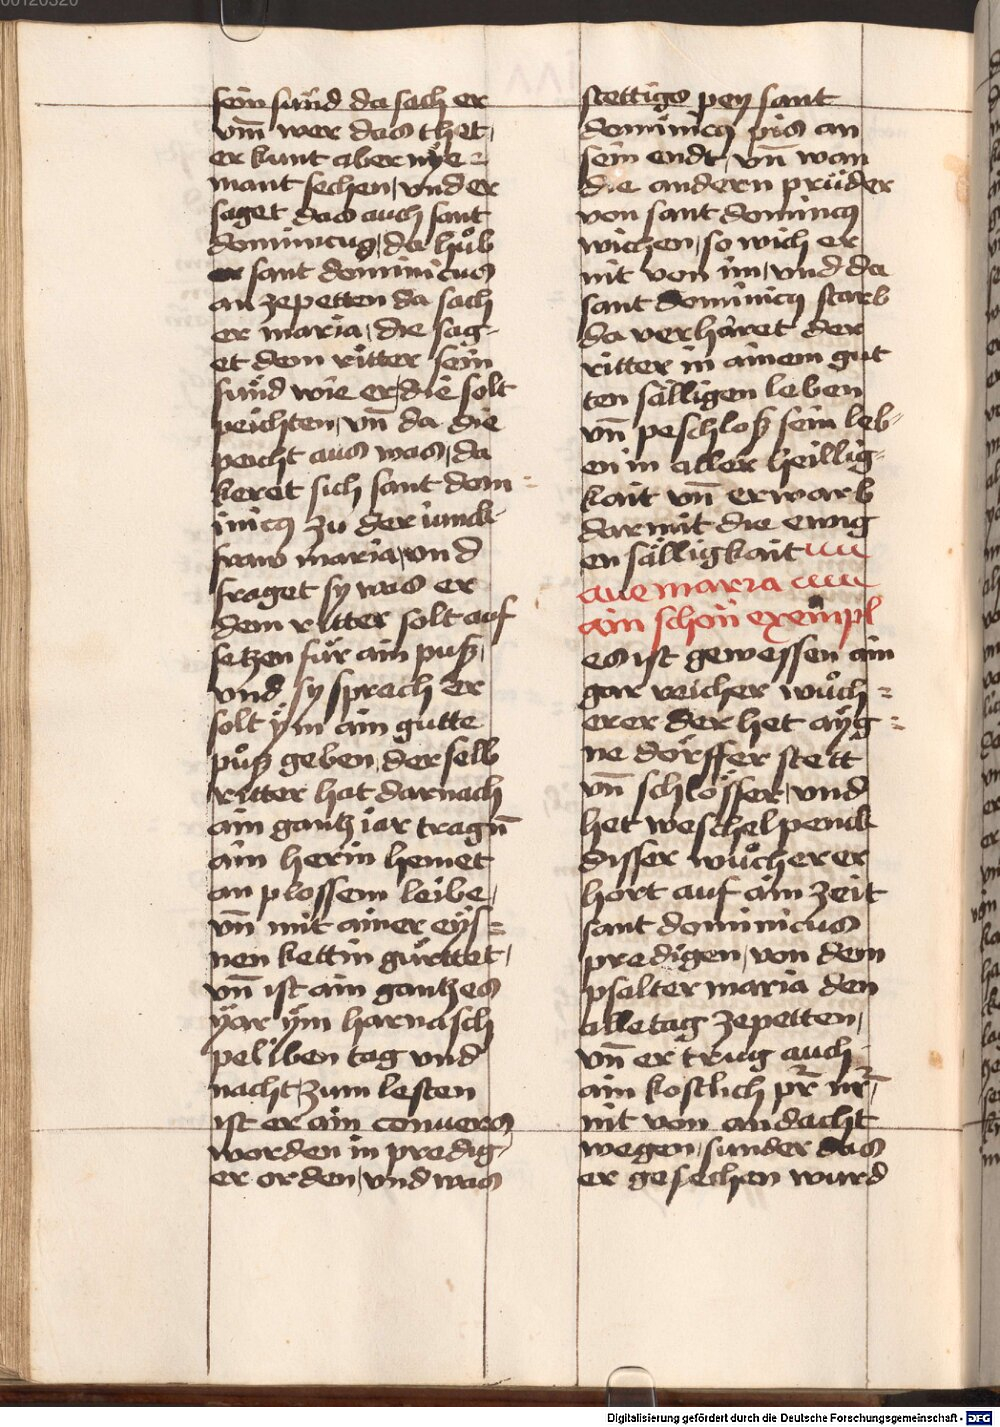 sein sünd da sach er
vm̄ wer das thet,
er kunt aber nÿe =
mant sechen, vnd er
saget das auch sant
dominicus, da hůb
er sant dominicus
an ze petten da sach
er maria, die sag=
et dem ritter sein
sünd wie er, die solt
peichten, vn̄ da die
peicht aus was, da
keret sich sant dom=
inicꝰ zu der iunck=
fraw maria, vnd
fraget sy was er
dem ritter solt auf
setzen für ain puß,
vnd sy sprach er
solt ÿm ain gutte
půß geben, der selb
ritter hat darnach
ain gantz iar tragn̄
ain herin hemet
an plossem leibe,
vn̄ mit ainer eÿs=
nen kettin gürttet,
vn̄ ist ain gantzes
ÿar ÿm harnasch
peliben tag vnd
nacht, zum lesten
ist er ain conuers
worden in predig=
er orden, vnd was
stettigs pey sant
dominicꝰ pis an
sein endt, vn̄ wan
die andern prüder
von sant dominicꝰ
wichen, so wich er
nit von im, vnd da
sant dominicꝰ starb
da verharet der
ritter in ainem gut
ten sälligen leben
vn̄ peschloß sein leb=
en in aller heillig=
kait vn̄ erwarb
dar mit die ewig
en sälligkait
aue maria
ain schön exempl
es ist gewessen ain
gar reicher wůch =
erer der het aÿg =
ne dörffer stett
vn̄ schlösser, vnd
het weschelpenck
disser wůcherer
hört auf ain zeit
sant dominicus
predigen, von dem
psalter maria den
alle tag ze petten,
vn̄ er trug auch
ain kostlich pr̄ nr̄,
nit von andacht
wegen, sunder das
er gesechen wurd
Digitalisierung gefördert durch die Deutsche Forschungsgemeinschaft - DFG